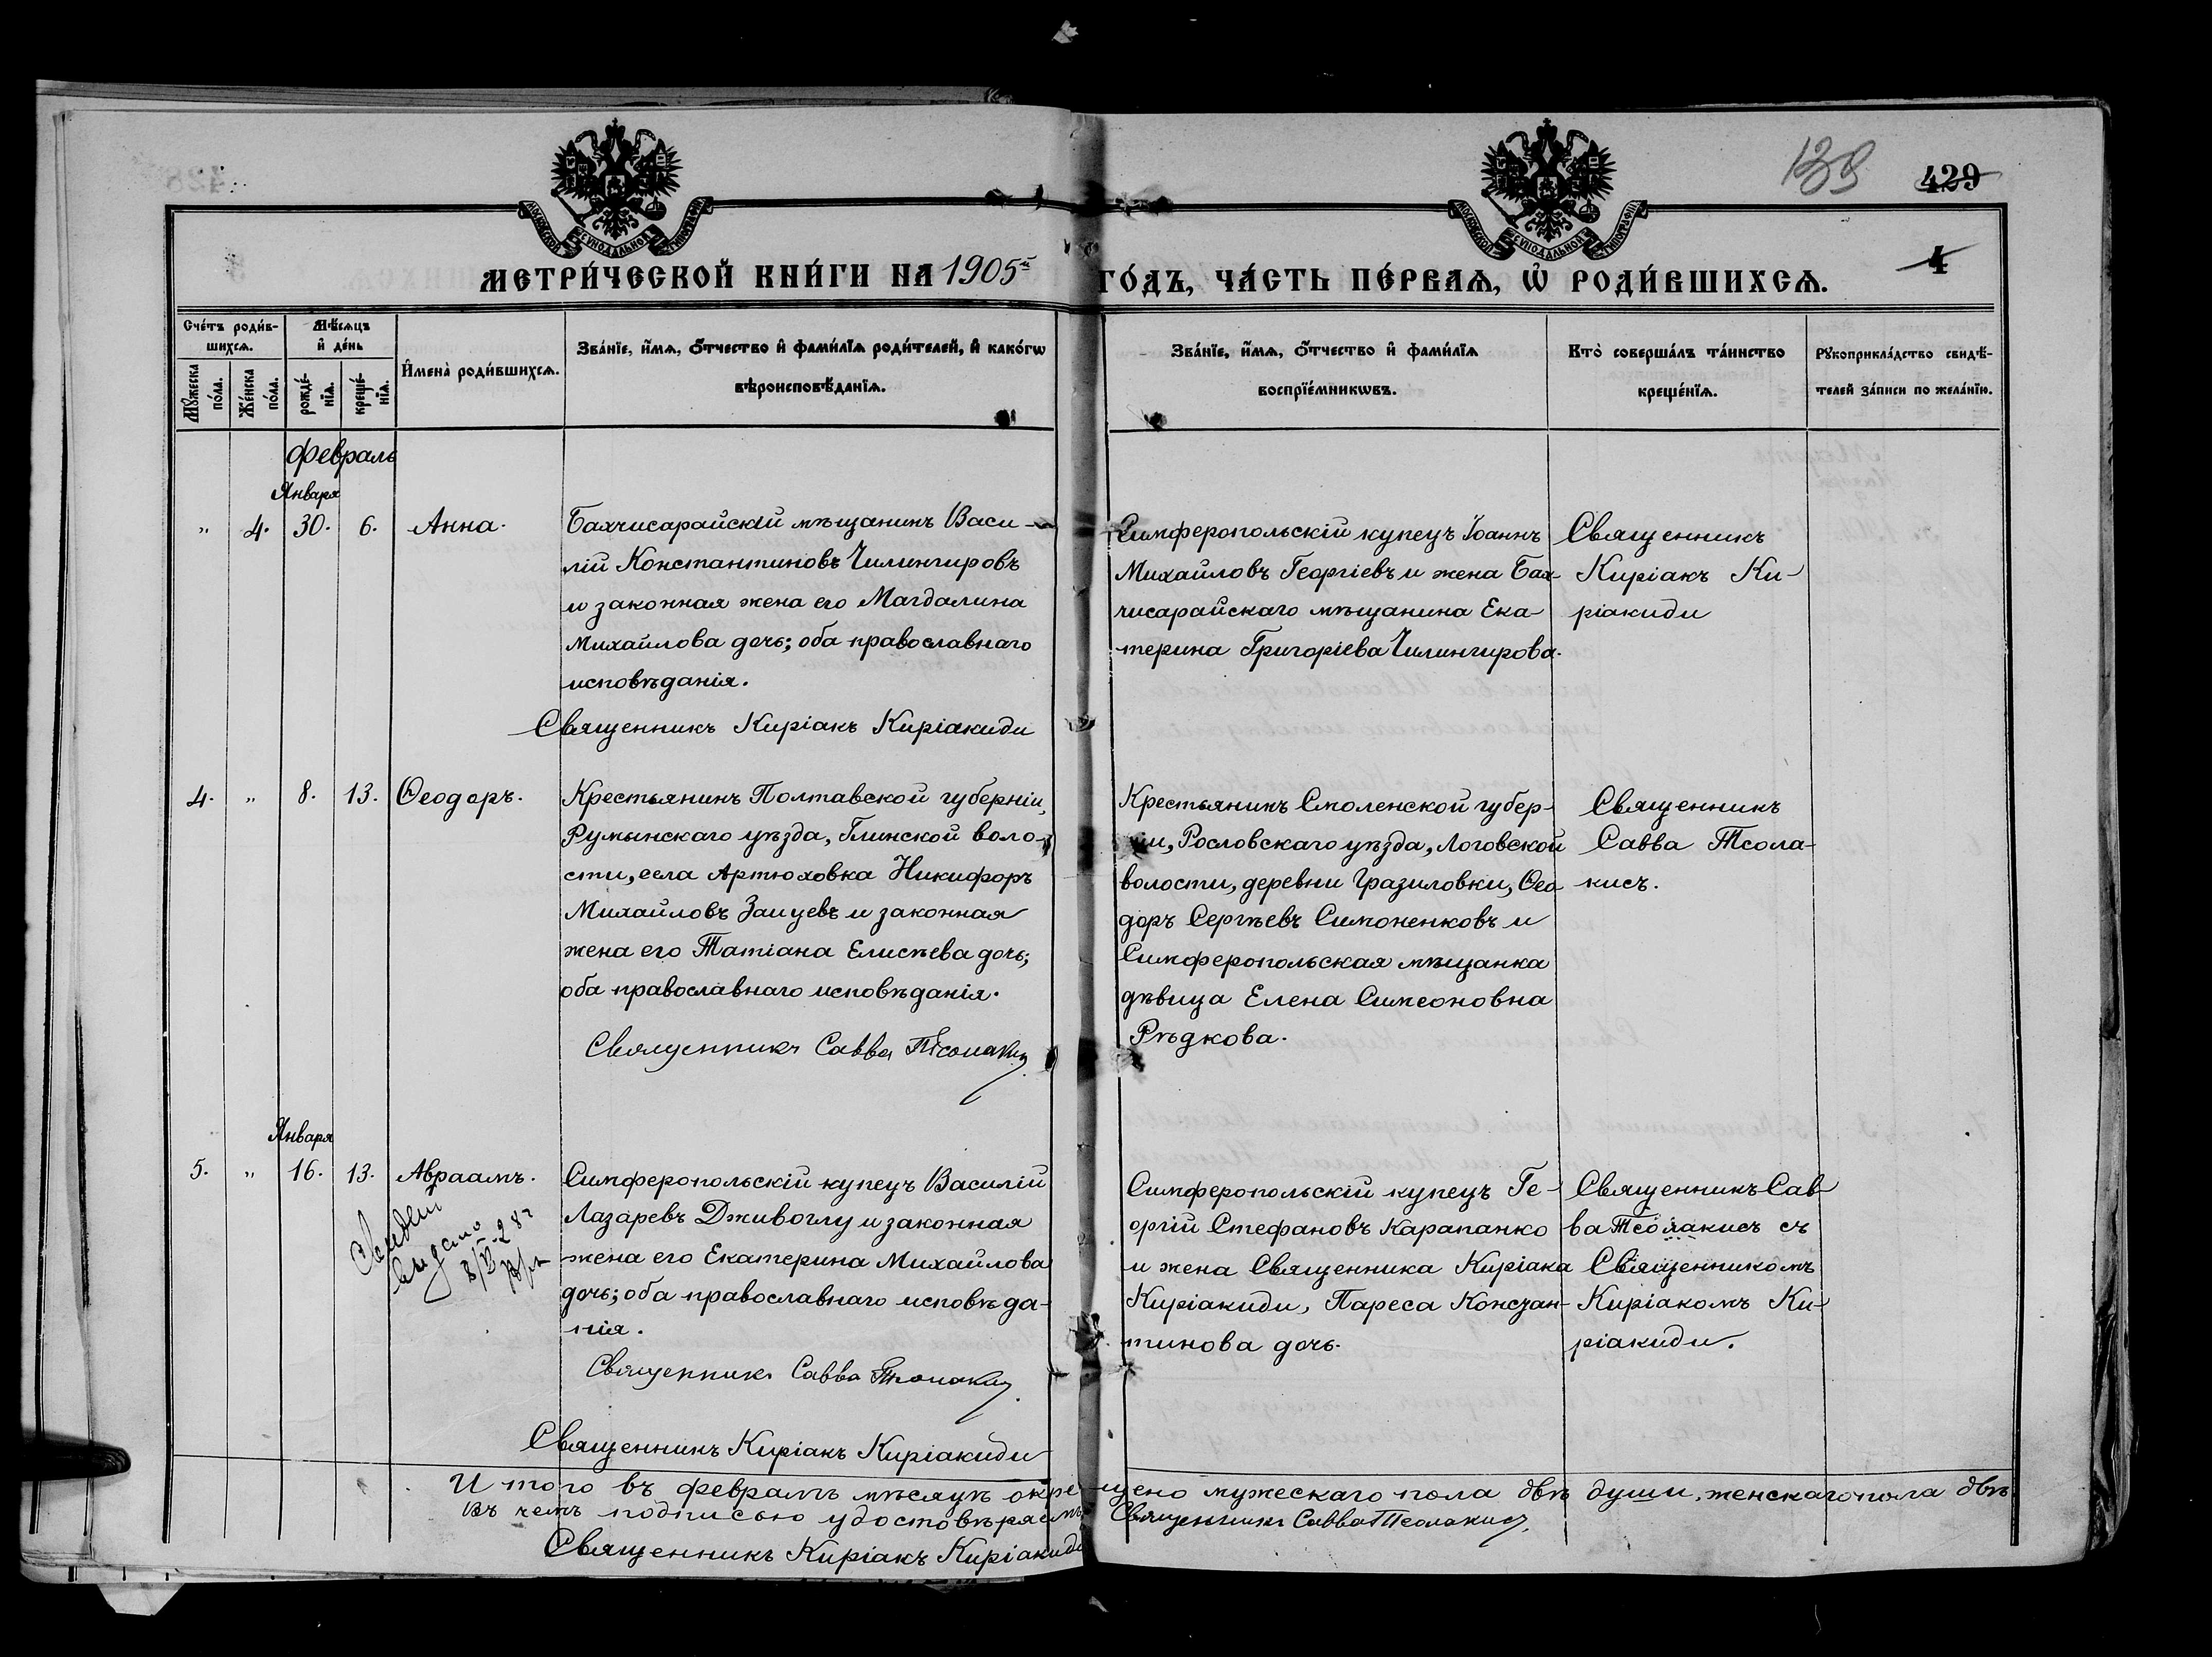 139
429
4
МОСКОВСКОЙ СѴНОДАЛЬНОЙ ТИПОГРАФІИ
МОСКОВСКОЙ СѴНОДАЛЬНОЙ ТИПОГРАФІИ
МЕТРИ́ЧЕСКОЙ КНИ́ГИ НА 1905й ГО́ДЪ, ЧА́СТЬ ПЕ́РВАѦ, Ѡ҆ РОДИ́ВШИХСѦ.
Сче́тъ роди́в-
шихсѧ.
Мꙋ́жеска по́ла.
Же́нска по́ла.
Мѣ́сѧцъ
и҆ де́нь
рожде́-нїѧ.
креще́-нїѧ.
И҆мена̀ роди́вшихсѧ.
Зва́нїе, и҆́мѧ, ѻ҆́тчество и҆ фами́лїѧ роди́телей, и҆ како́гѡ
вѣроисповѣ́данїѧ.
Зва́нїе, и҆́мѧ, ѻ҆́тчество и҆ фами́лїѧ
воспрїе́мникѡвъ.
Кто̀ соверша́лъ та́инство
креще́нїѧ.
Рꙋкоприкла́дство свидѣ́-
телей за́писи по жела́нїю.
Февраль
Января
" 4. 30. 6. Анна.
Бахчисарайскій мѣщанинъ Васи-
лій Константиновъ Чилингировъ
и законная жена его Магдалина
Михайлова дочь; оба православнаго
исповѣданія.
Священникъ Киріакъ Киріакиди
Симферопольскій купецъ Іоаннъ
Михайловъ Георгіевъ и жена Бах-
чисарайскаго мѣщанина Ека-
терина Григоріева Чилингирова.
Священникъ
Киріакъ Ки-
ріакиди
4. " 8. 13. Ѳеодоръ.
Крестьянинъ Полтавской губерніи,
Румынскаго уѣзда, Глинской воло-
сти, села Артюховка Никифоръ
Михайловъ Заицевъ и законная
жена его Татіана Елисѣева дочь;
оба православнаго исповѣданія.
Священникъ Савва Тсолакис
Крестьянинъ Смоленской губер-
ніи, Рословскаго уѣзда, Логовской
волости, деревни Гразиловки, Ѳео-
доръ Сергѣевъ Симоненковъ и
Симферопольская мѣщанка
дѣвица Елена Симеоновна
Рѣдкова.
Священникъ
Савва Тсола-
кисъ.
Января
5. " 16. 13. Авраамъ.
Свидет
выдано
Симферопольскій купецъ Василій
Лазаревъ Дживоглу и законная
жена его Екатерина Михайлова
дочь; оба православнаго исповѣда-
нія.
Священникъ Савва Тсолакис
Священникъ Киріакъ Киріакиди
Симферопольскій купецъ Ге-
оргій Стефановъ Карапанко
и жена Священника Киріака
Киріакиди, Пареса Констан-
тинова дочь.
Священникъ Сав-
ва Тсолакисъ съ
Священникомъ
Киріакомъ Ки-
ріакиди.
Итого въ февралѣ мѣсяцѣ окрещено мужескаго пола двѣ души, женскаго пола двѣ
въ чемъ подписью удостовѣряемъ Священникъ Савва Тсолакисъ
Священникъ Киріакъ Киріакиди